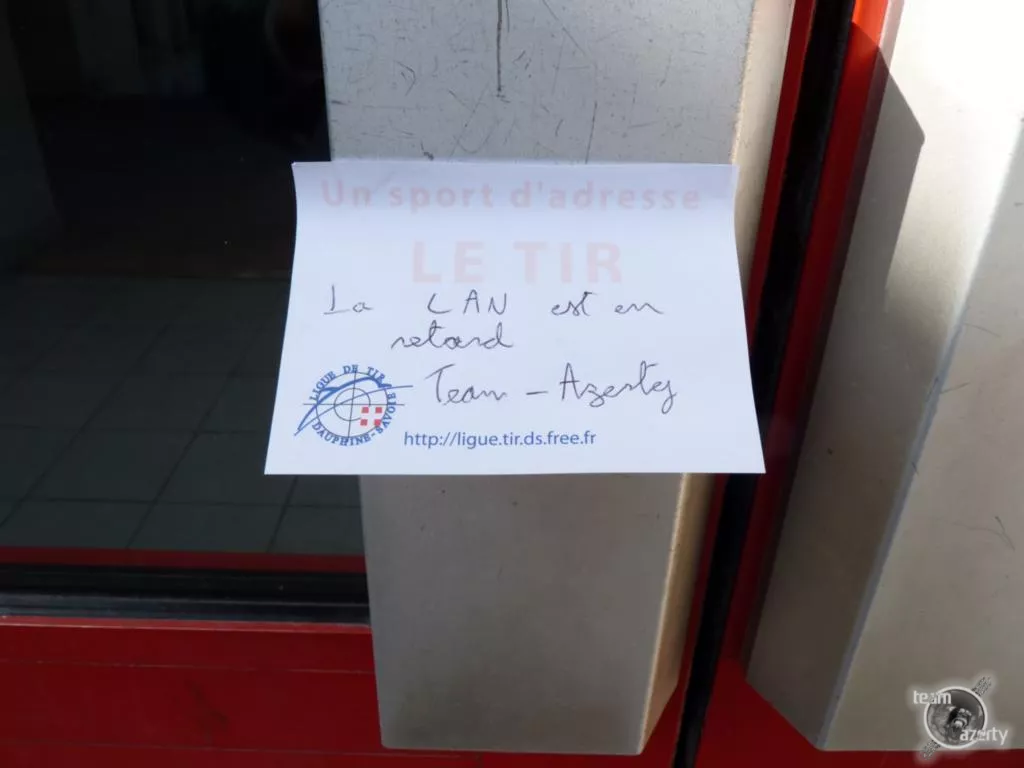 Un sport d'adresse
LE TIR
La LAN est en
retard
Team - Azerty
LIGUE DE TIR
DAUPHINE-SAVOIE
http://ligue.tir.ds.free.fr
team
azerty